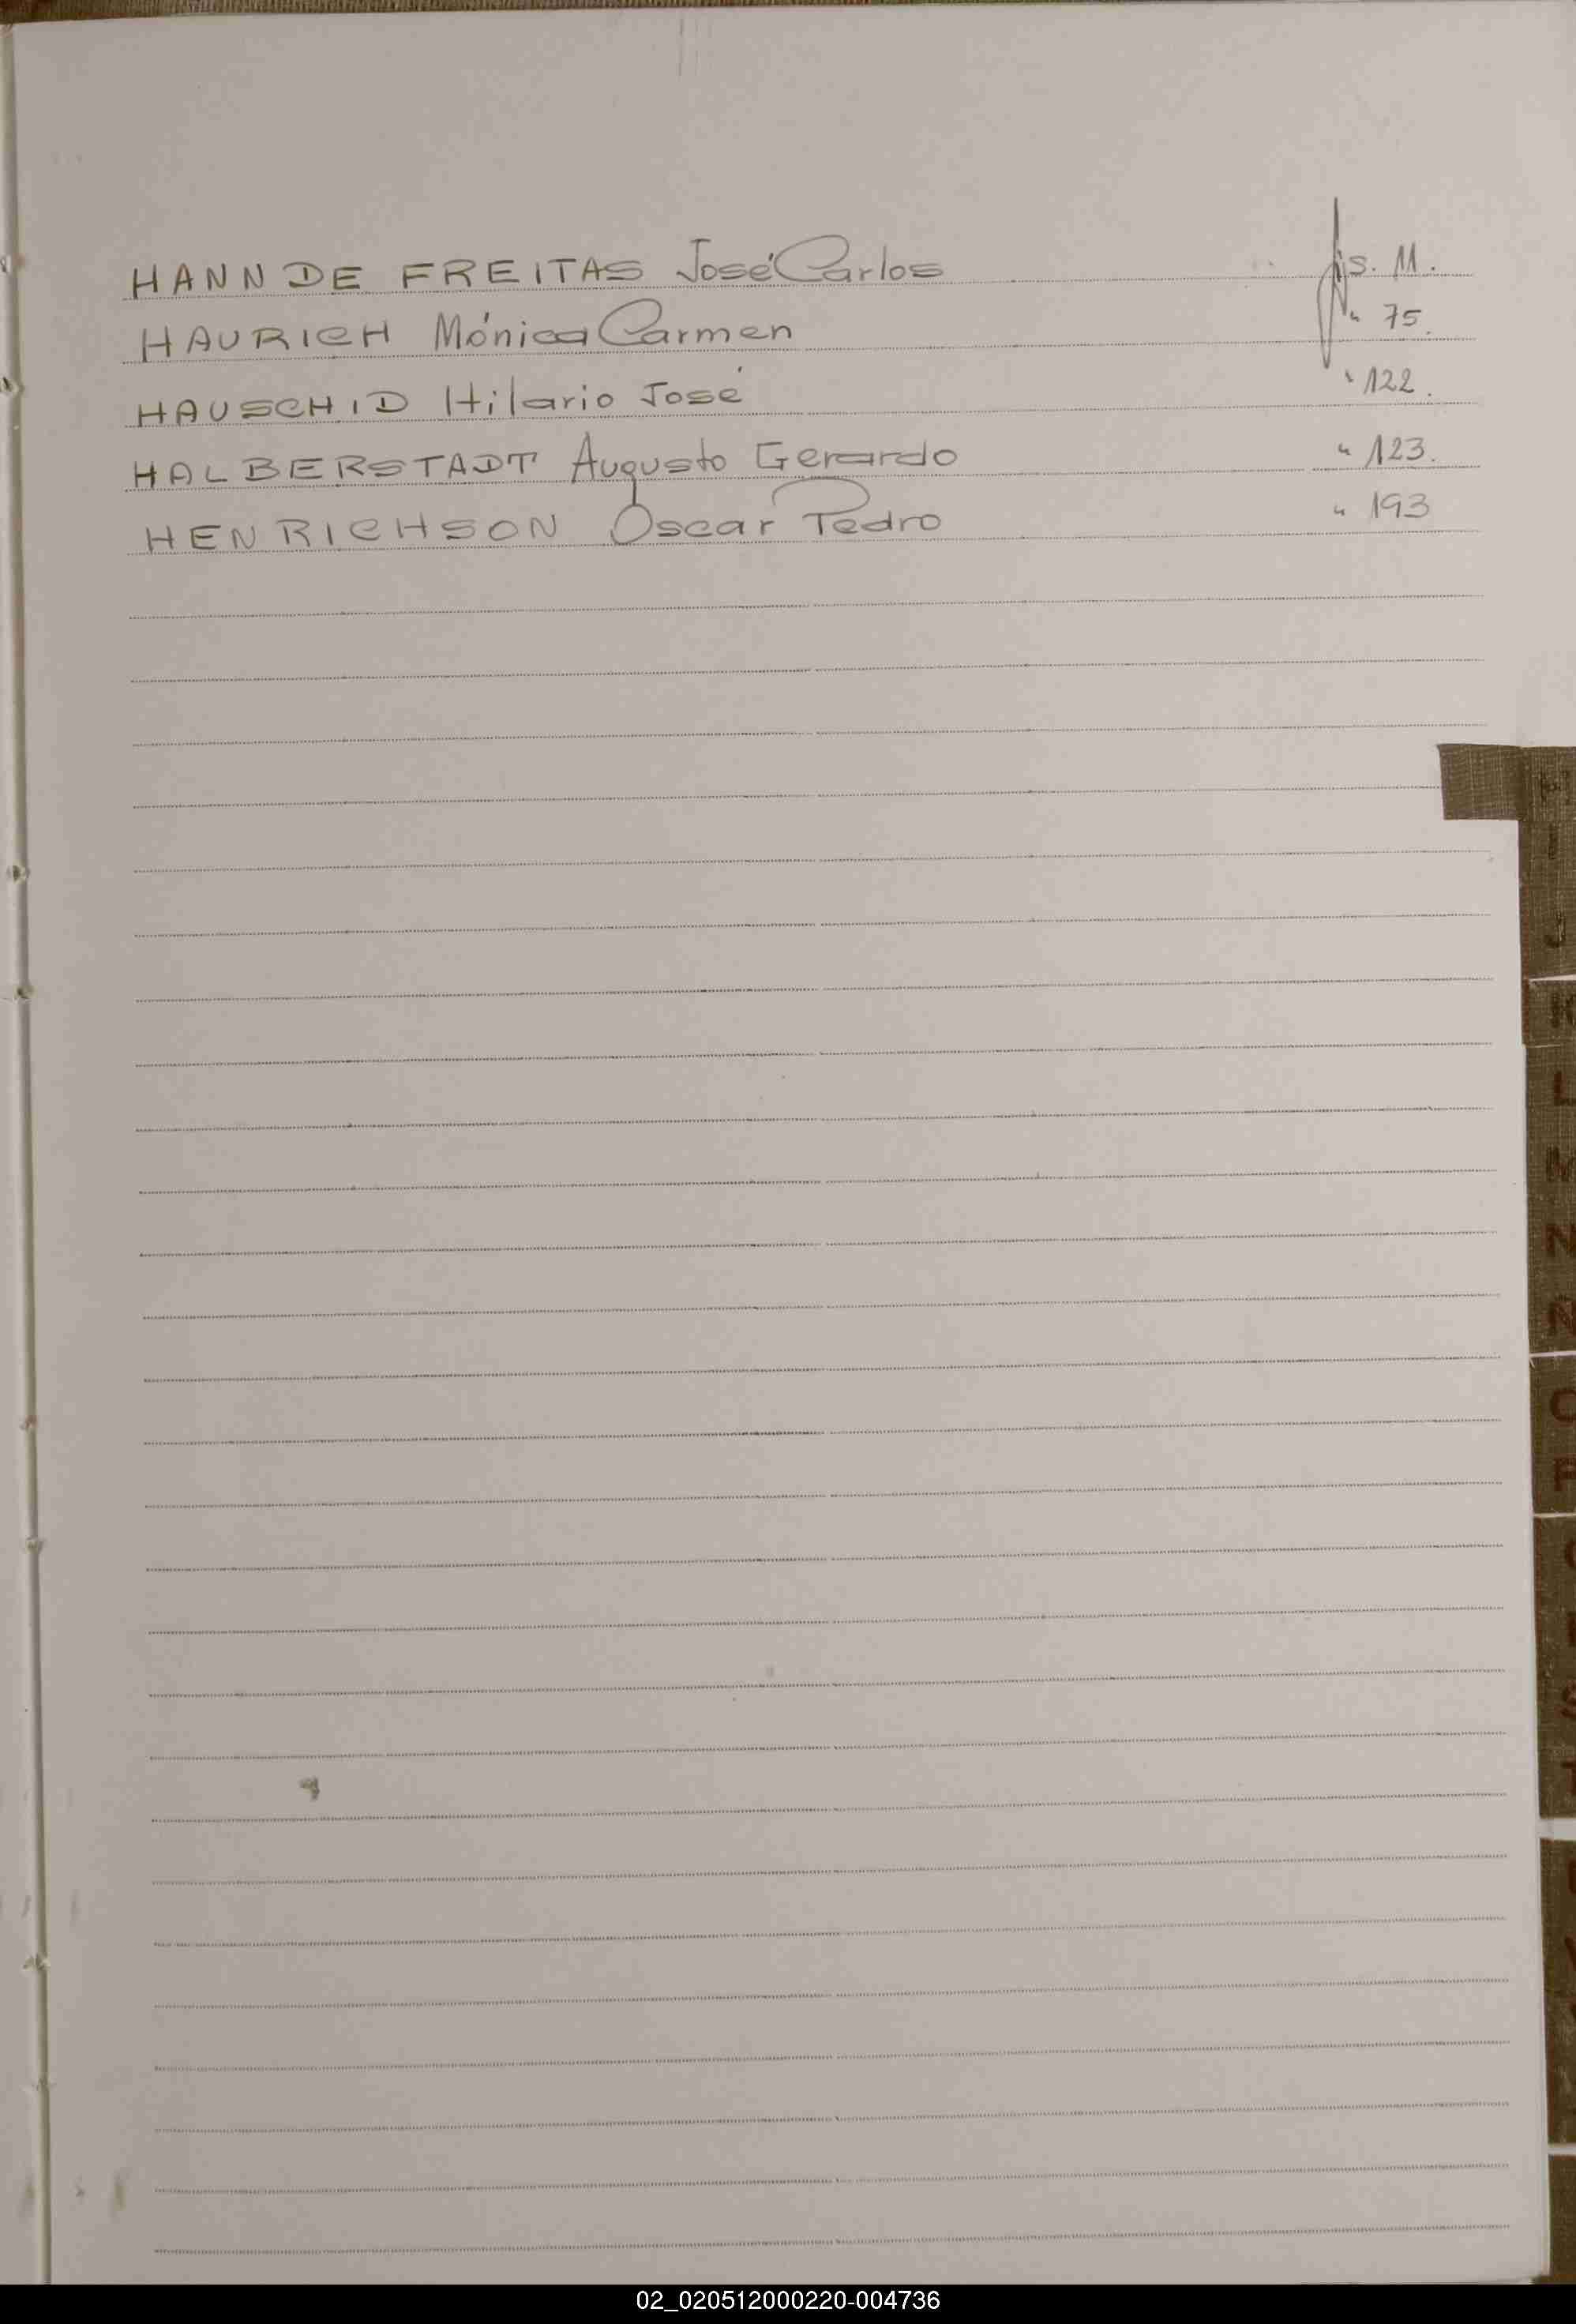 HANN DE FREITAS José Carlos fjs. 11.
HAURICH Mónica Carmen " 75.
HAUSCHID Hilario José " 122.
HALBERSTADT Augusto Gerardo " 123.
HENRICHSON Oscar Pedro " 193
I
J
K
L
M
N
Ñ
O
P
Q
R
S
T
02_020512000220-004736